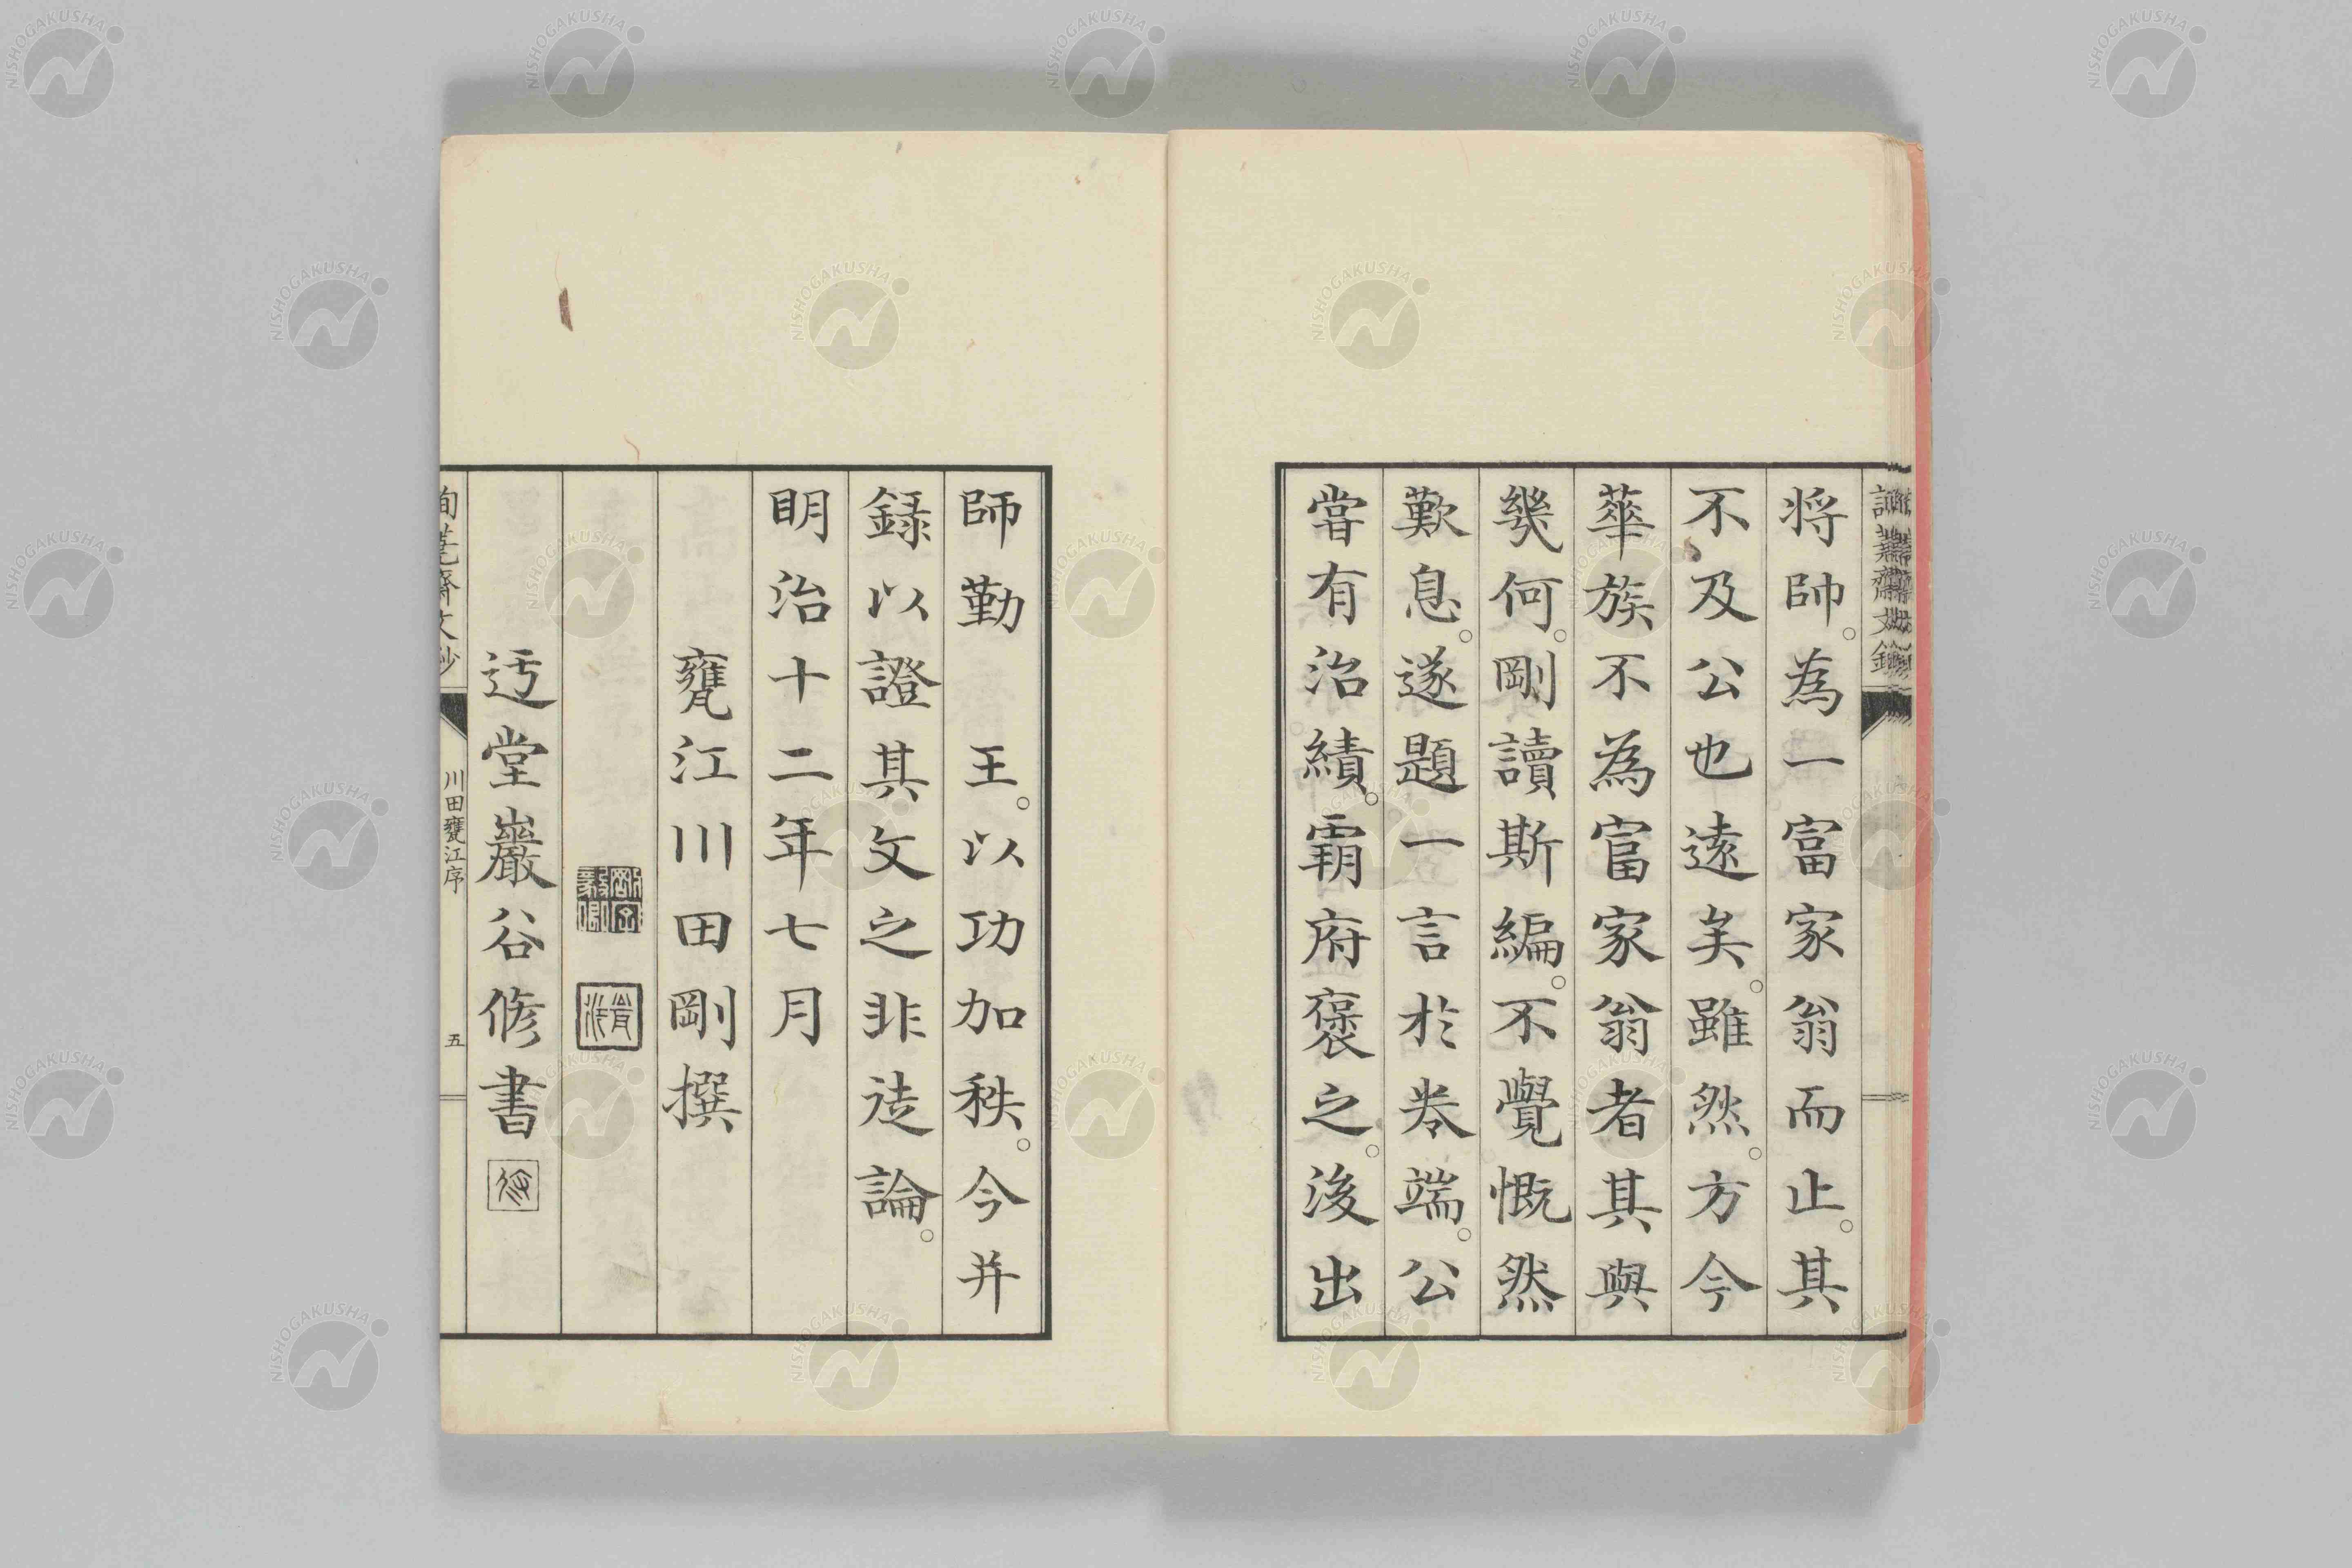 将帥。為一富家翁而止。其
不及公也遠矣。雖然。方今
華族不為富家翁者其與
幾何。剛讀斯編。不覺慨然
歎息。遂題一言於巻端。公
嘗有治績。霸府褒之。後出
師勤 王。以功加秩。今并
録以證其文之非徒論。
明治十二年七月
甕江川田剛撰
迂堂巖谷修書
川田甕江序
五
NISHOGAKUSHA